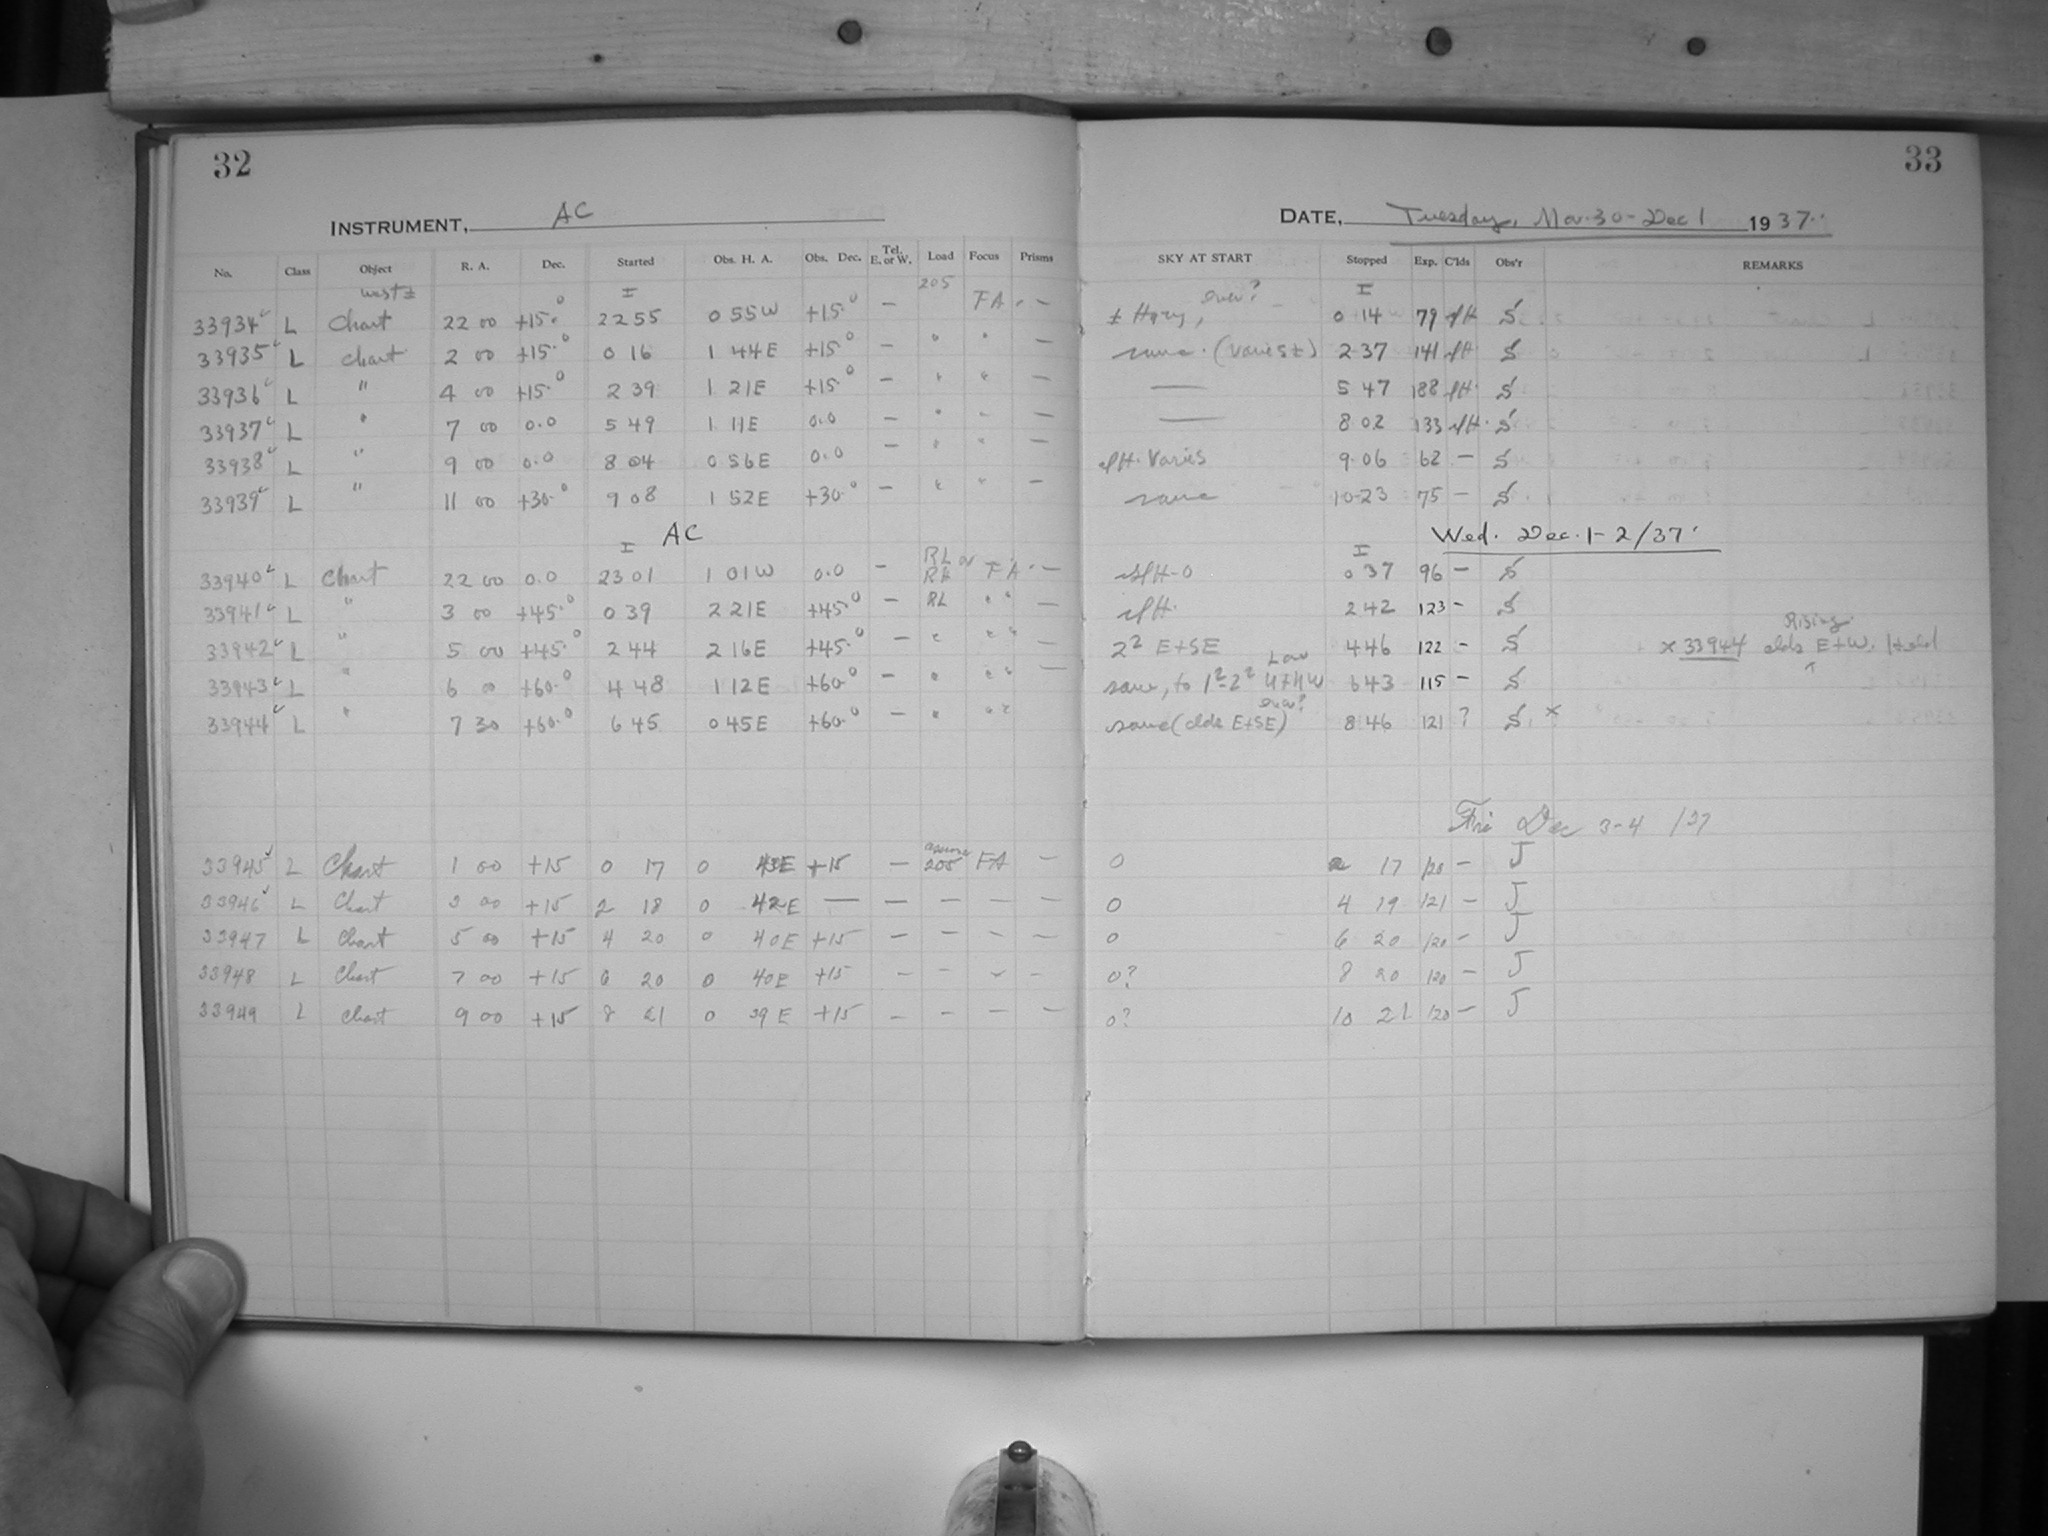 32
33
INSTRUMENT, AC
DATE, Tuesday, Nov. 30 - Dec 1 1937
No. Class Object R. A. Dec. Started Obs. H. A. Obs. Dec. Tel. E. or W. Load Focus Prisms SKY AT START Stopped Exp. C'lds Obs'r REMARKS
west ± I 205 I
33934 L Chart 22 00 +15.° 22 55 0 55W +15.° — FA. — ± Hazy, over? 0 14 79 slH S
33935 L chart 2 00 +15.° 0 16 1 44E +15° — " " — same. (varies ±) 2 37 141 slH. S
33936 L " 4 00 +15.° 2 39 1 21E +15.° — " " — — 5 47 188 slH. S
33937 L " 7 00 0.0 5 49 1 11E 0.0 — " " — — 8 02 133 slH. S
33938 L " 9 00 0.0 8 04 0 56E 0.0 — " " — slH. Varies 9 06 62 — S
33939 L " 11 00 +30.° 9 08 1 52E +30.° — " " — same 10 23 75 — S
AC
Wed. Dec. 1-2/37.
I I
33940 L Chart 22 00 0.0 23 01 1 01W 0.0 — RL or RH FA. — slH-0 0 37 96 — S
33941 L " 3 00 +45.° 0 39 2 21E +45.° — RL " " — slH. 2 42 123 — S
33942 L " 5 00 +45.° 2 44 2 16E +45.° — " " " — 2² E+SE 4 46 122 — S x 33944 clds Rising E+W.
33943 L " 6 00 +60.° 4 48 1 12E +60.° — " " " — same, to 1²-2² Low 6 43 115 — S
33944 L " 7 30 +60.° 6 45 0 45E +60.° — " " " same (clds E+SE) over? 8 46 121 ? S x
Fri Dec 3-4 /37
33945 L Chart 1 00 +15 0 17 0 43E +15 — assume 205 FA — 0 2 17 120 — J
33946 L Chart 3 00 +15 2 18 0 42E — — — — — 0 4 19 121 — J
33947 L Chart 5 00 +15 4 20 0 40E +15 — — — — 0 6 20 120 — J
33948 L Chart 7 00 +15 6 20 0 40E +15 — — — — 0? 8 20 120 — J
33949 L Chart 9 00 +15 8 21 0 39E +15 — — — — 0? 10 21 120 — J